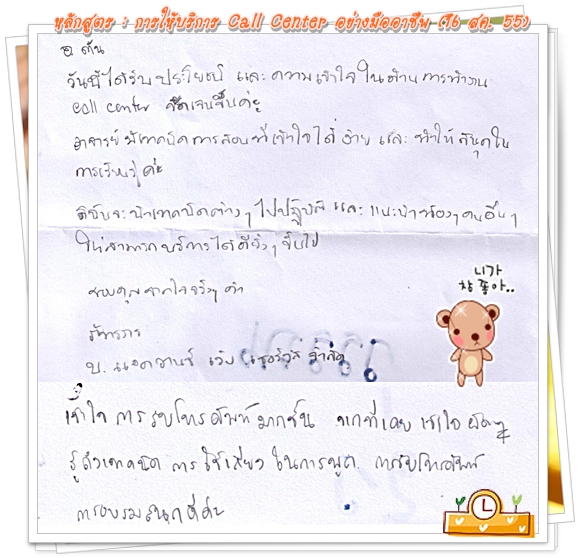 หลักสูตร : การให้บริการ Call Center อย่างมืออาชีพ (16 สค. 55)
อ ต้น
วันนี้ได้รับประโยชน์ และ ความเข้าใจ ในด้านการทำงาน
call center ชัดเจนขึ้นค่ะ
อาจารย์ มีเทคนิคการสอนที่เข้าใจได้ง่าย และ ทำให้สนุกใน
การเรียนรู้ค่ะ
ดิฉันจะนำเทคนิคต่างๆ ไปปฏิบัติ และ แนะนำน้องๆ คนอื่นๆ
ให้สามารถบริการได้ดียิ่งๆ ขึ้นไป
ขอบคุณจากใจจริงๆ ค่ะ
บ. แอดวานซ์ เซอร์วิส จำกัด
니가
참 좋아..
เข้าใจ การรับโทรศัพท์มากขึ้น จากที่เคย เข้าใจ ผิดๆ
รู้ถึงเทคนิค การใช้เสียง ในการพูด การรับโทรศัพท์
การอบรมสนุกดีค่ะ